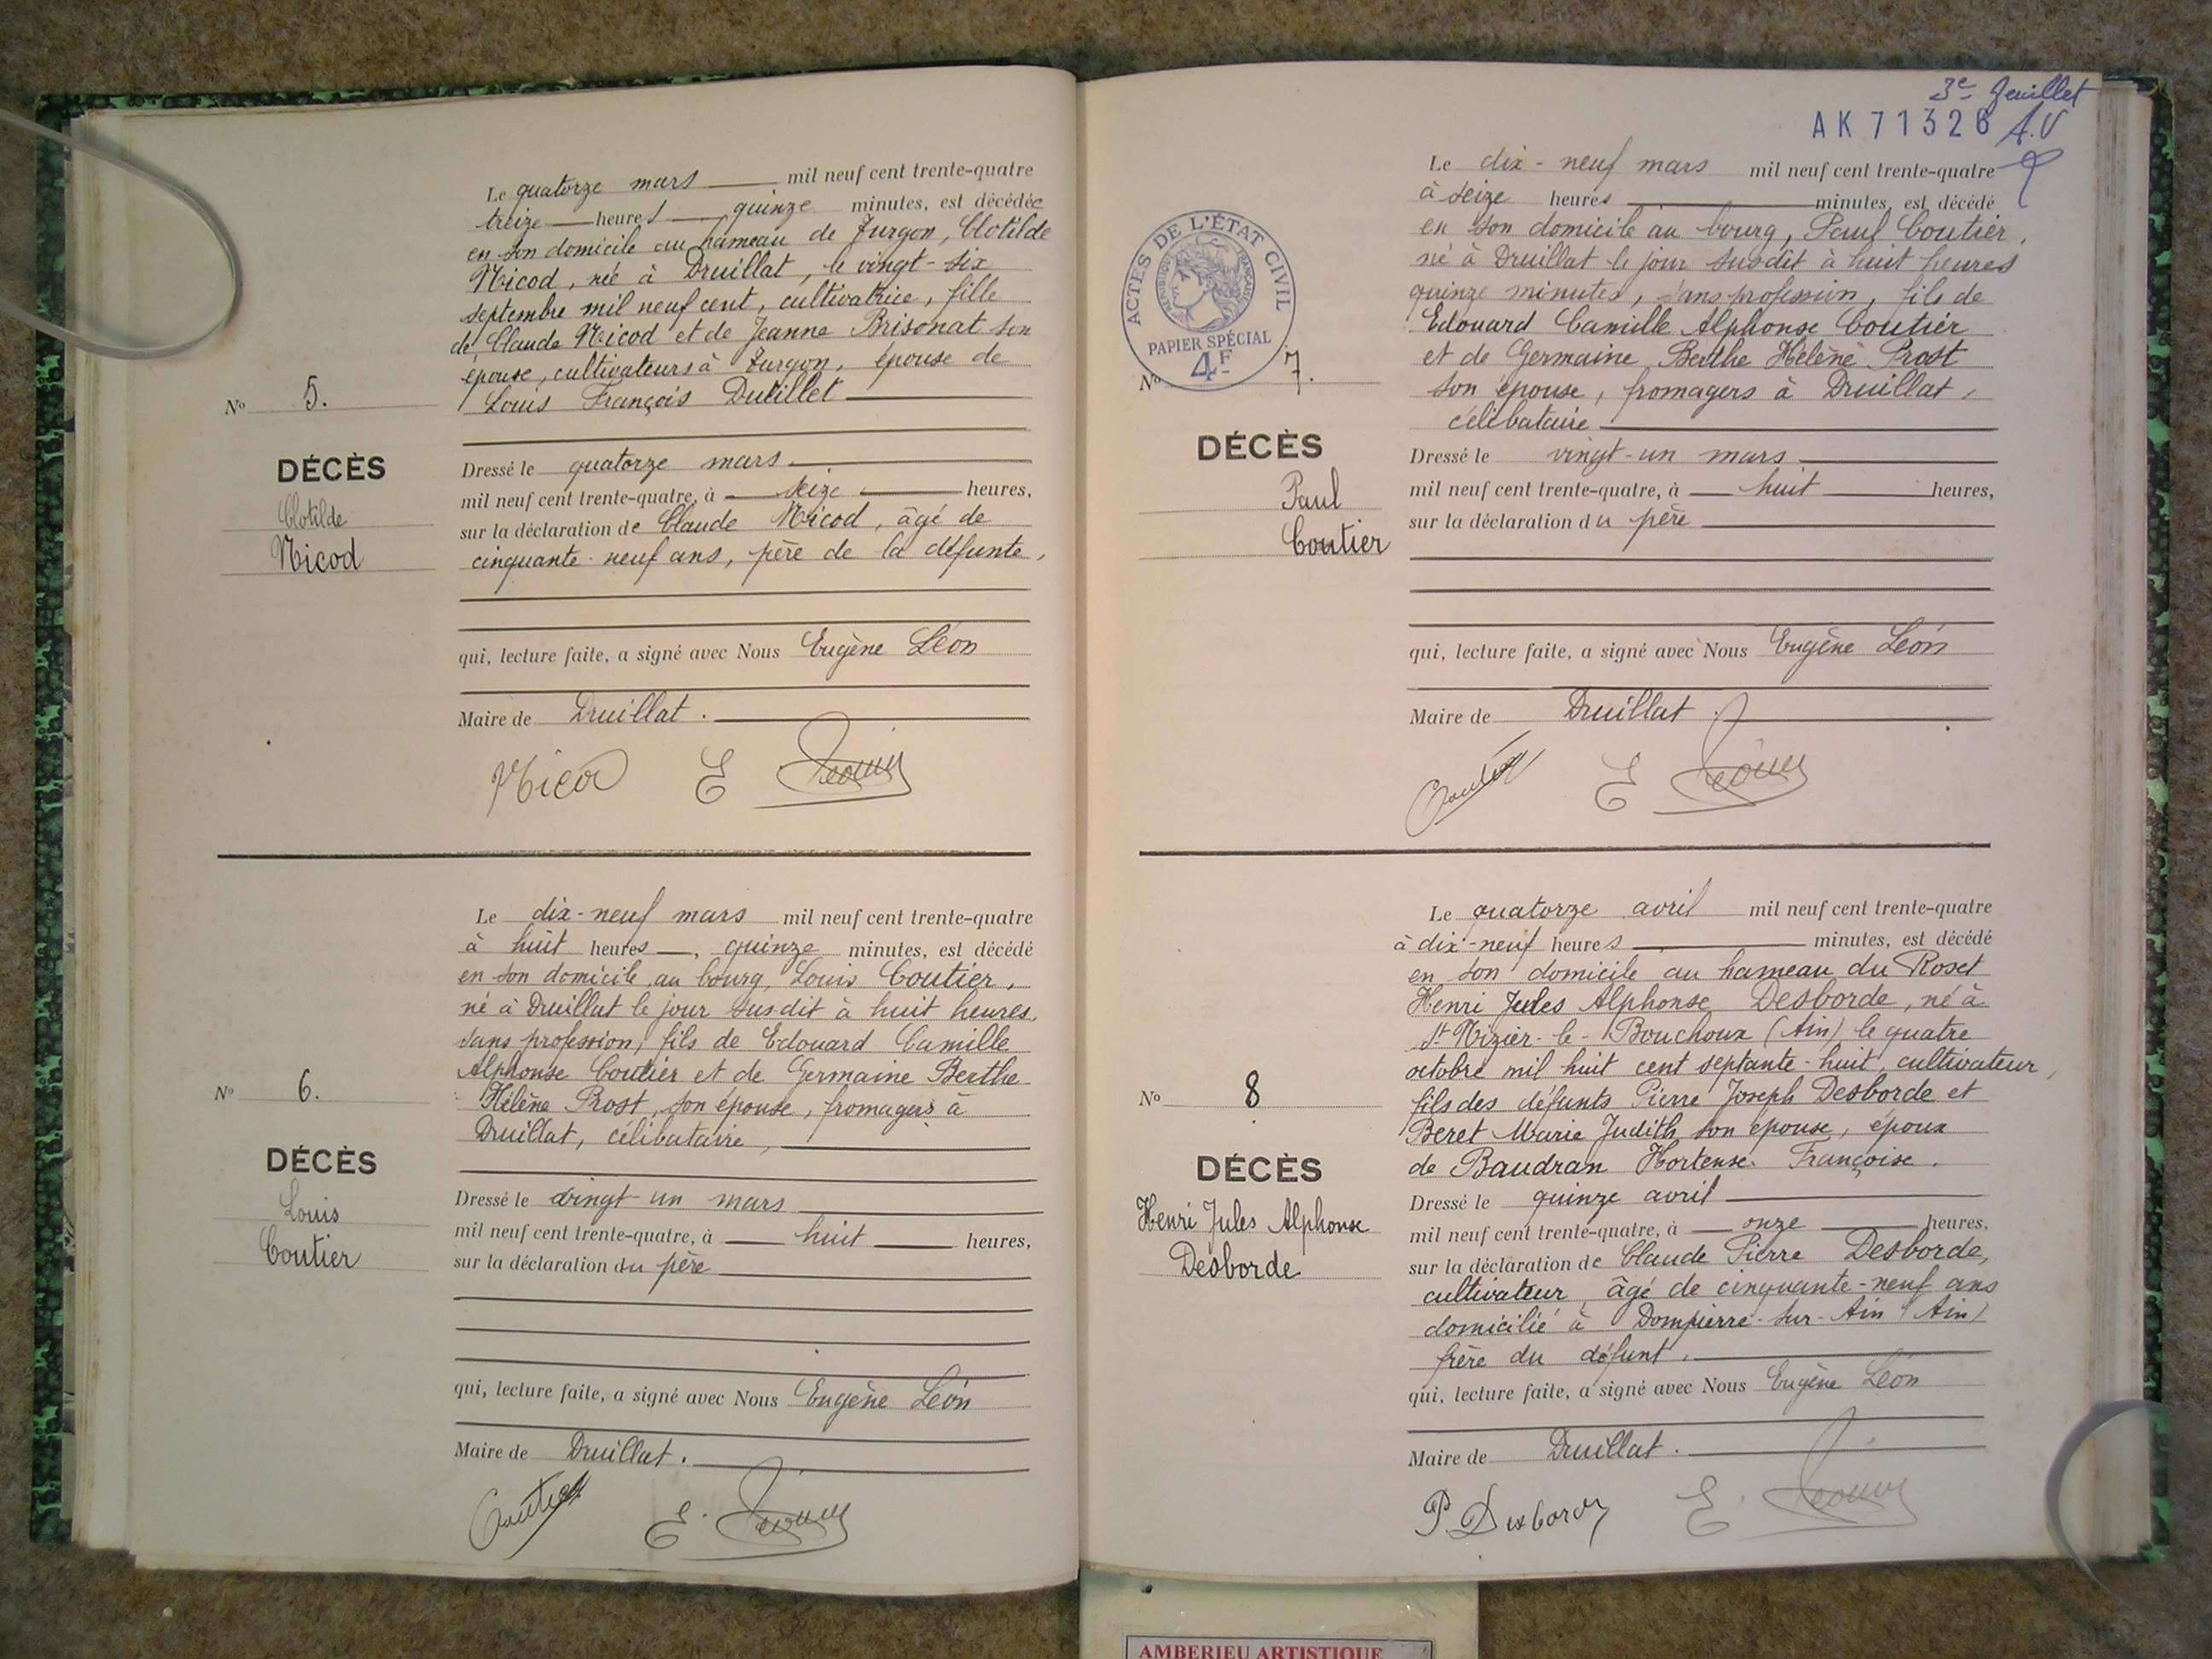 Le quatorze mars mil neuf cent trente-quatre
treize heures quinze minutes, est décédée
en son domicile au hameau de Turgon, Clotilde
Nicod, née à Druillat, le vingt-six
septembre mil neuf cent, cultivatrice, fille
de Claude Nicod et de Jeanne Brisonat son
épouse, cultivateurs à Turgon, épouse de
Louis François Dutillet
No 5.
DÉCÈS
Clotilde
Nicod
Dressé le quatorze mars
mil neuf cent trente-quatre, à seize heures,
sur la déclaration de Claude Nicod, âgé de
cinquante-neuf ans, père de la défunte,
qui, lecture faite, a signé avec Nous Eugène Léon
Maire de Druillat.
Nicod E
Le dix-neuf mars mil neuf cent trente-quatre
à huit heures, quinze minutes, est décédé
en son domicile, au bourg, Louis Coutier,
né à Druillat le jour susdit à huit heures,
sans profession, fils de Edouard Camille
Alphonse Coutier et de Germaine Berthe
Hélène Prost, son épouse, fromagers à
Druillat, célibataire,
No 6.
DÉCÈS
Louis
Coutier
Dressé le vingt-un mars
mil neuf cent trente-quatre, à huit heures,
sur la déclaration du père
qui, lecture faite, a signé avec Nous Eugène Léon
Maire de Druillat.
Coutier E.
3e feuillet
AK 71326 A.V
ACTES DE L'ÉTAT CIVIL
RÉPUBLIQUE FRANÇAISE
PAPIER SPÉCIAL
4F
Le dix-neuf mars mil neuf cent trente-quatre
à seize heures minutes, est décédé
en son domicile au bourg, Paul Coutier,
né à Druillat le jour susdit à huit heures
quinze minutes, sans profession, fils de
Edouard Camille Alphonse Coutier
et de Germaine Berthe Hélène Prost
son épouse, fromagers à Druillat,
célibataire
No 7.
DÉCÈS
Paul
Coutier
Dressé le vingt-un mars
mil neuf cent trente-quatre, à huit heures,
sur la déclaration du père
qui, lecture faite, a signé avec Nous Eugène Léon
Maire de Druillat.
Coutier E
Le quatorze avril mil neuf cent trente-quatre
à dix-neuf heures minutes, est décédé
en son domicile au hameau du Roset
Henri Jules Alphonse Desborde, né à
St Nizier-le-Bouchoux (Ain) le quatre
octobre mil huit cent septante-huit, cultivateur,
fils des défunts Pierre Joseph Desborde et
Beret Marie Judith son épouse, époux
de Baudran Hortense Françoise.
No 8
DÉCÈS
Henri Jules Alphonse
Desborde
Dressé le quinze avril
mil neuf cent trente-quatre, à onze heures,
sur la déclaration de Claude Pierre Desborde,
cultivateur, âgé de cinquante-neuf ans
domicilié à Dompierre-sur-Ain (Ain)
frère du défunt,
qui, lecture faite, a signé avec Nous Eugène Léon
Maire de Druillat.
P. Desborde E.
AMBERIEU ARTISTIQUE